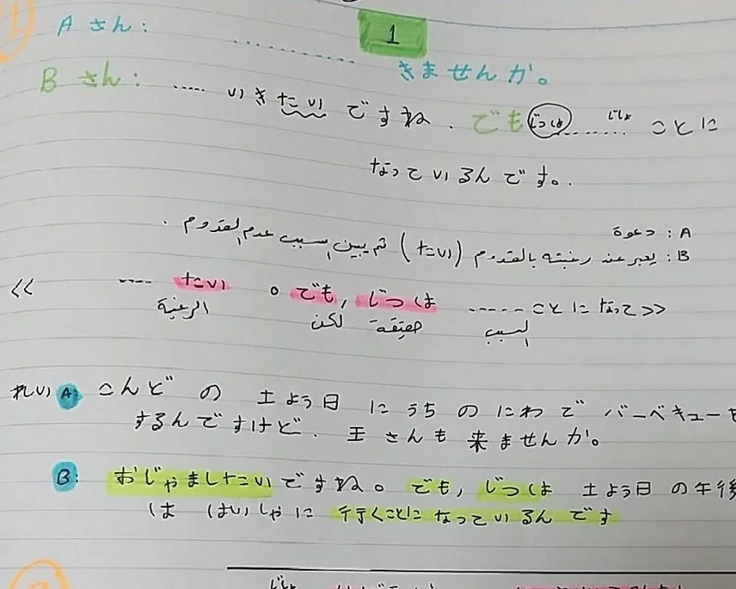 1
Aさん: ........... きませんか。
Bさん: ..... いきたいですね. でもじつは........ じしょ ことに
なっているんです。.
A : دعوة
B : يعبر عن رغبته بالقدوم (たい) ثم يبين السبب عدم القدوم .
<< ---- たい 。でも, じつは ----- ことになって>>
الرغبة لكن حقيقة السبب
れい A: こんど の 土よう日 に うち の にわ で バーベキューを
するんですけど. 王さんも 来ませんか。
B: おじゃましたいですね。 でも, じつは 土よう日 の 午後
は はいしゃに 行くことになっているんです